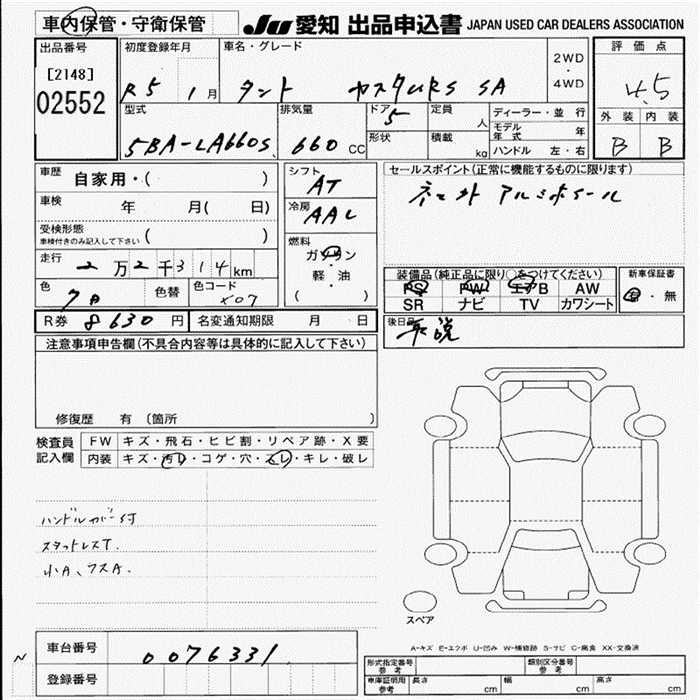 車内保管・守衛保管
JU 愛知 出品申込書 JAPAN USED CAR DEALERS ASSOCIATION
出品番号
[2148]
02552
初度登録年月
R5 1月
車名・グレード
タント カスタムRS SA
2WD
・
4WD
評価点
4.5
外装 内装
B B
型式
5BA-LA660S
排気量
660 CC
ドア
5
形状
定員
人
積載
kg
ディーラー・並行
モデル年式 年
ハンドル 左・右
車歴
自家用・( )
車検
年 月( 日)
受検形態
車検付きのみ記入して下さい ( )
走行
2万2千314km
色
色替
色コード
X07
シフト
AT
冷房
AAC
燃料
ガソリン
・
軽・油
( )
セールスポイント(正常に機能するものに限ります)
アルミホイール
装備品(純正品に限り○をつけてください)
PS PW エアB AW
SR ナビ TV カワシート
新車保証書
有・無
R券 8630円
名変通知期限 月 日
後日品
取説
注意事項申告欄(不具合内容等は具体的に記入して下さい)
修復歴 有〔箇所 〕
検査員
記入欄
FW キズ・飛石・ヒビ割・リペア跡・X要
内装 キズ・汚れ・コゲ・穴・スレ・キレ・破レ
ハンドルカバー付
スタッドレスT.
小A、フスA.
スペア
A-キズ E-エクボ U-凹み W-補修跡 S-サビ C-腐食 XX-交換済
N
車台番号
0076331
登録番号
形式指定番号
参考
類別区分番号
参考
車庫証明用
参考
長さ cm
幅 cm
高さ cm